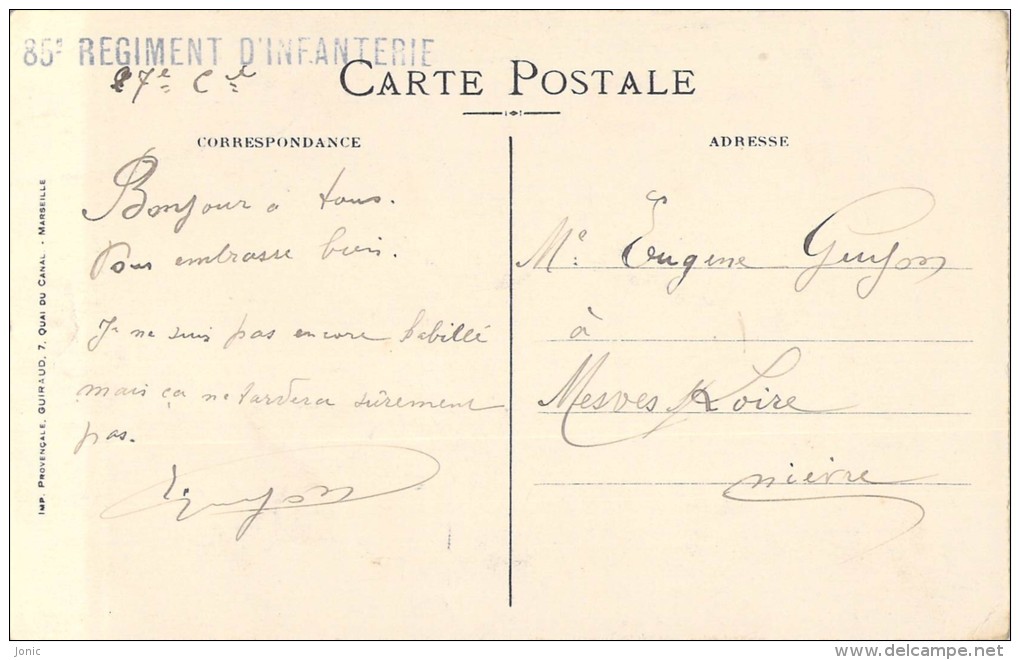 85e REGIMENT D'INFANTERIE
27e Cie
CARTE POSTALE
CORRESPONDANCE
ADRESSE
Bonjour a tous.
Vous embrasse bien.
Je ne suis pas encore habillé
mais ça ne tardera sûrement
pas.
Guyon
Me Eugène Guyon
à
Mesves s/ Loire
nièvre
IMP. PROVENÇALE, GUIRAUD, 7, QUAI DU CANAL - MARSEILLE
Jonic
delcampe.net